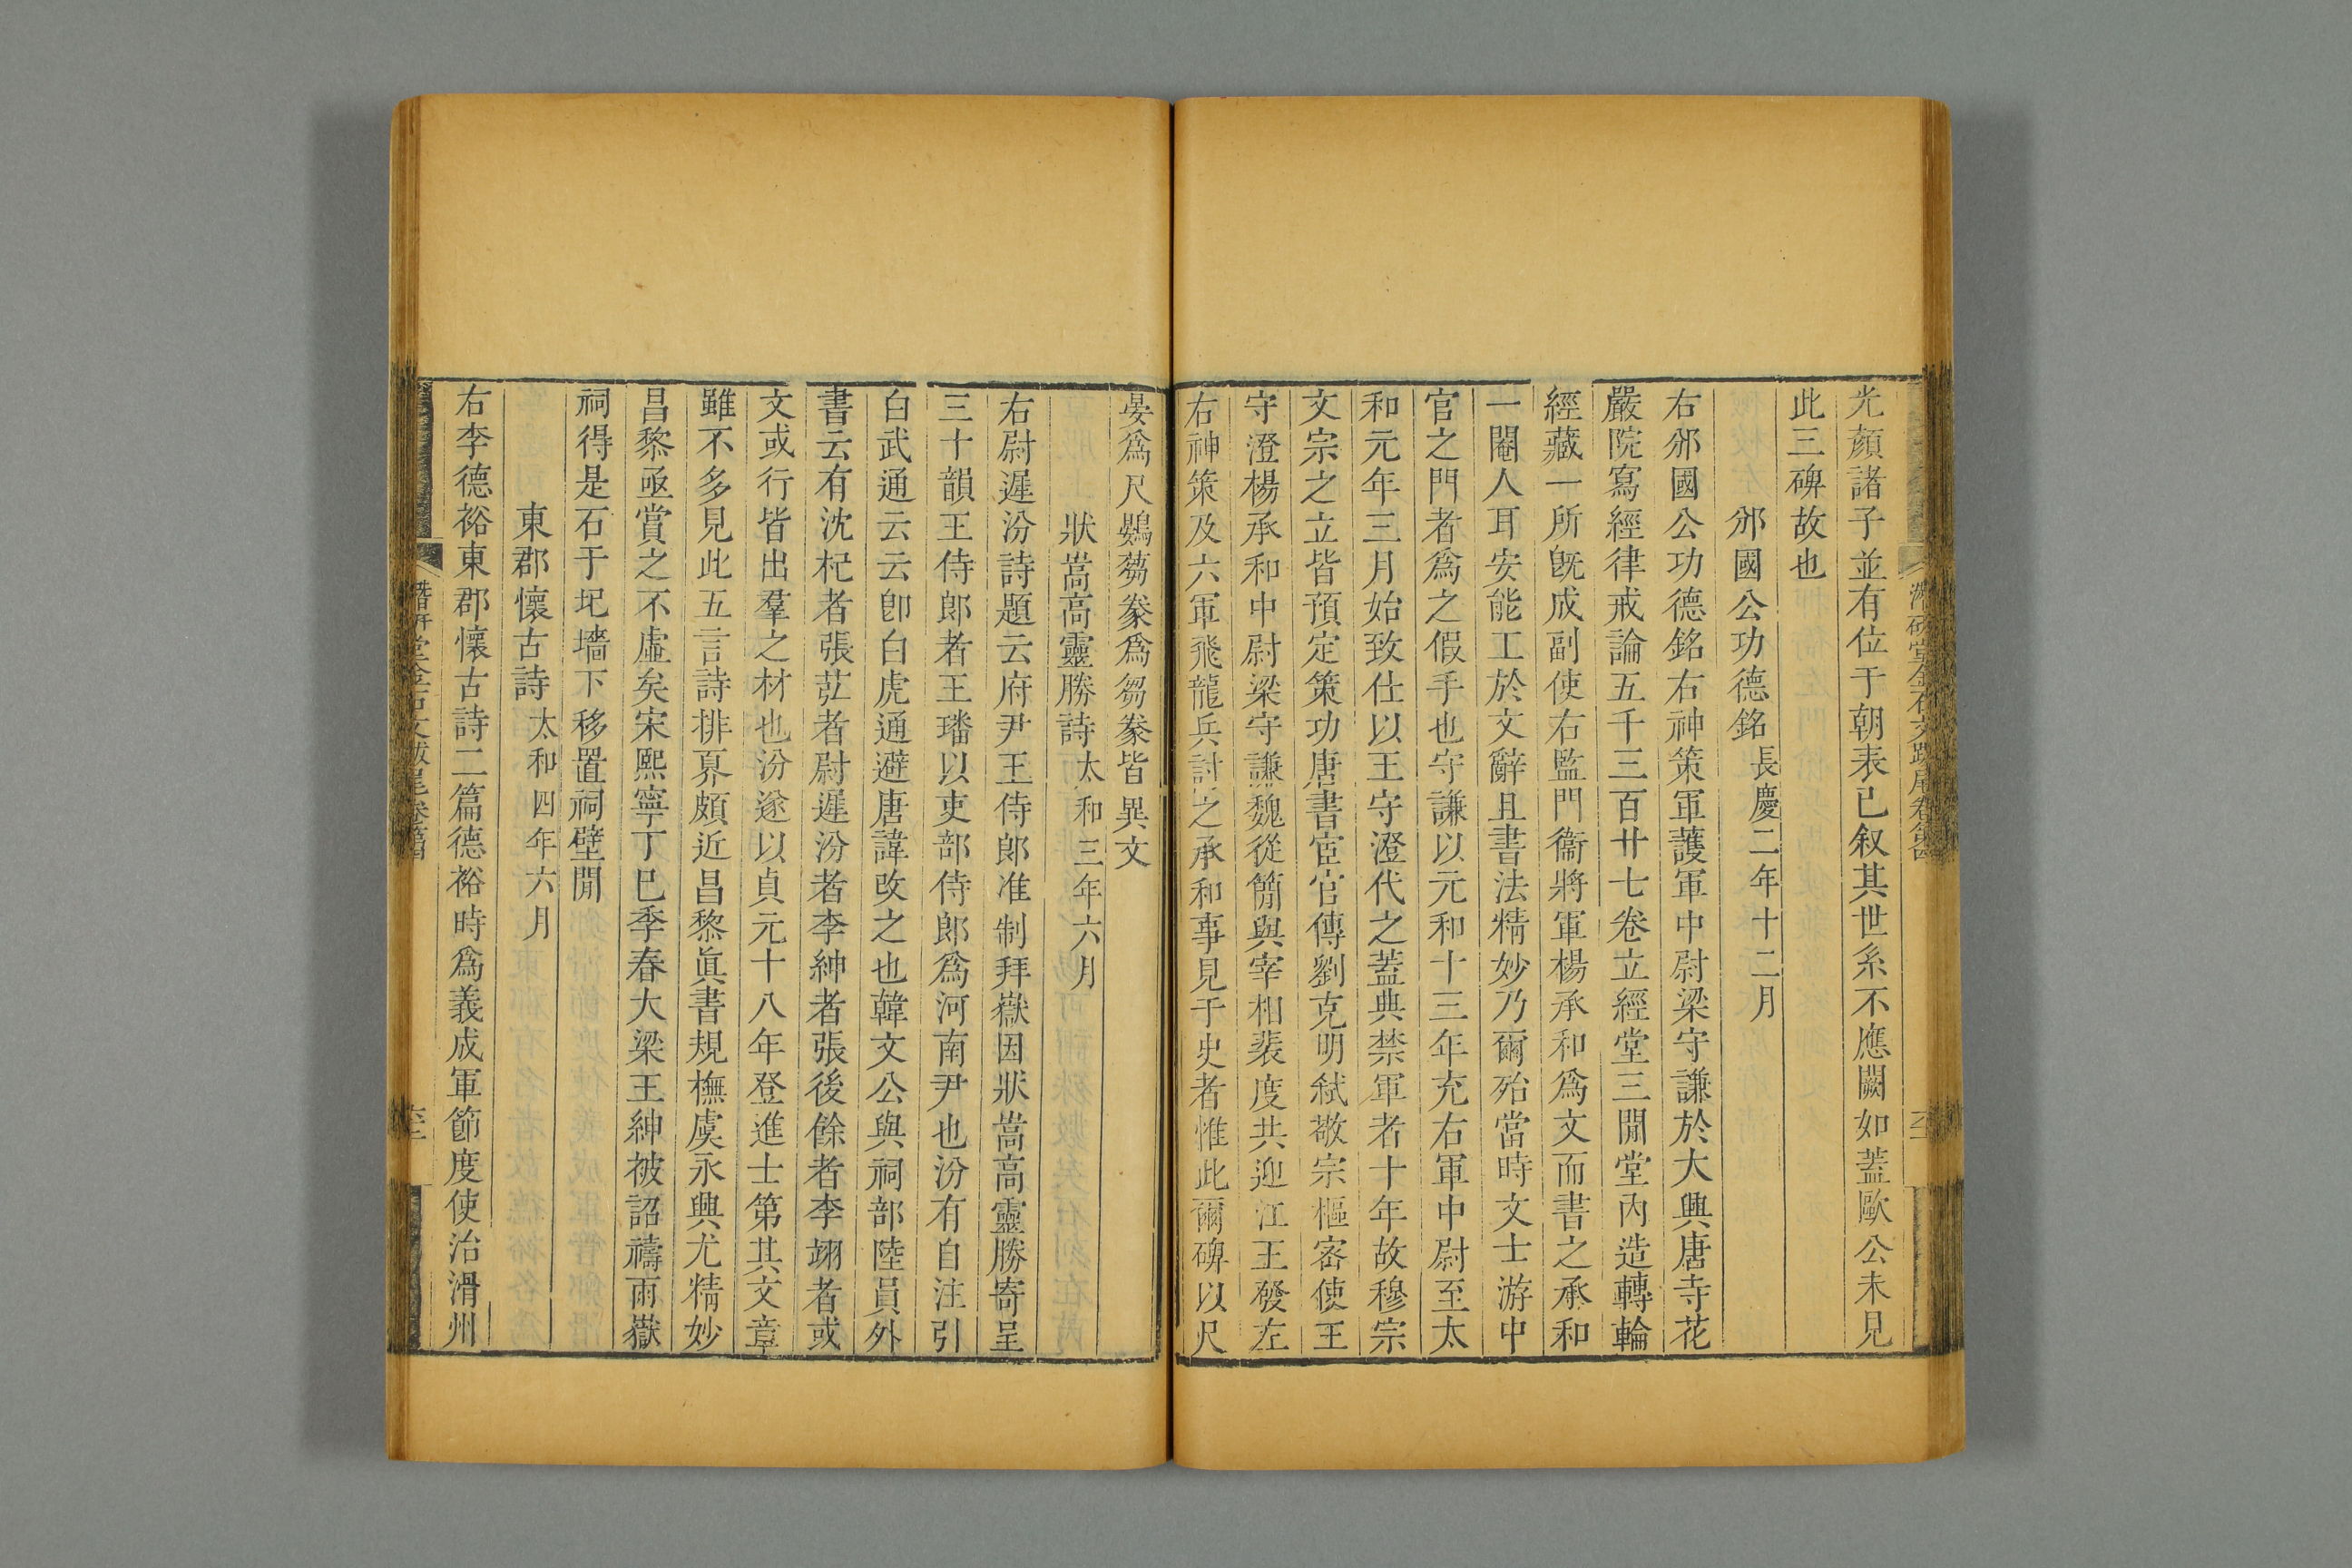 光顏諸子並有位于朝表已叙其世系不應闕如蓋歐公未見
此三碑故也
邠國公功德銘長慶二年十二月
右邠國公功德銘右神策軍護軍中尉梁守謙於大興唐寺花
嚴院寫經律戒論五千三百廿七卷立經堂三閒堂內造轉輪
經藏一所旣成副使右監門衞將軍楊承和爲文而書之承和
一閹人耳安能工於文辭且書法精妙乃爾殆當時文士游中
官之門者爲之假手也守謙以元和十三年充右軍中尉至太
和元年三月始致仕以王守澄代之蓋典禁軍者十年故穆宗
文宗之立皆預定策功唐書宦官傳劉克明弑敬宗樞密使王
守澄楊承和中尉梁守謙魏從簡與宰相裴度共迎江王發左
右神策及六軍飛龍兵討之承和事見于史者惟此爾碑以尺
晏爲尺鷃蒭豢爲芻豢皆異文
狀嵩高靈勝詩太和三年六月
右尉遲汾詩題云府尹王侍郎准制拜嶽因狀嵩高靈勝寄呈
三十韻王侍郎者王璠以吏部侍郎爲河南尹也汾有自注引
白武通云云卽白虎通避唐諱改之也韓文公與祠部陸員外
書云有沈杞者張苰者尉遲汾者李紳者張後餘者李翊者或
文或行皆出羣之材也汾遂以貞元十八年登進士第其文章
雖不多見此五言詩排奡頗近昌黎眞書規橅虞永興尤精妙
昌黎亟賞之不虛矣宋熙寧丁巳季春大梁王紳被詔禱雨嶽
祠得是石于圯墻下移置祠壁閒
東郡懷古詩太和四年六月
右李德裕東郡懷古詩二篇德裕時爲義成軍節度使治滑州